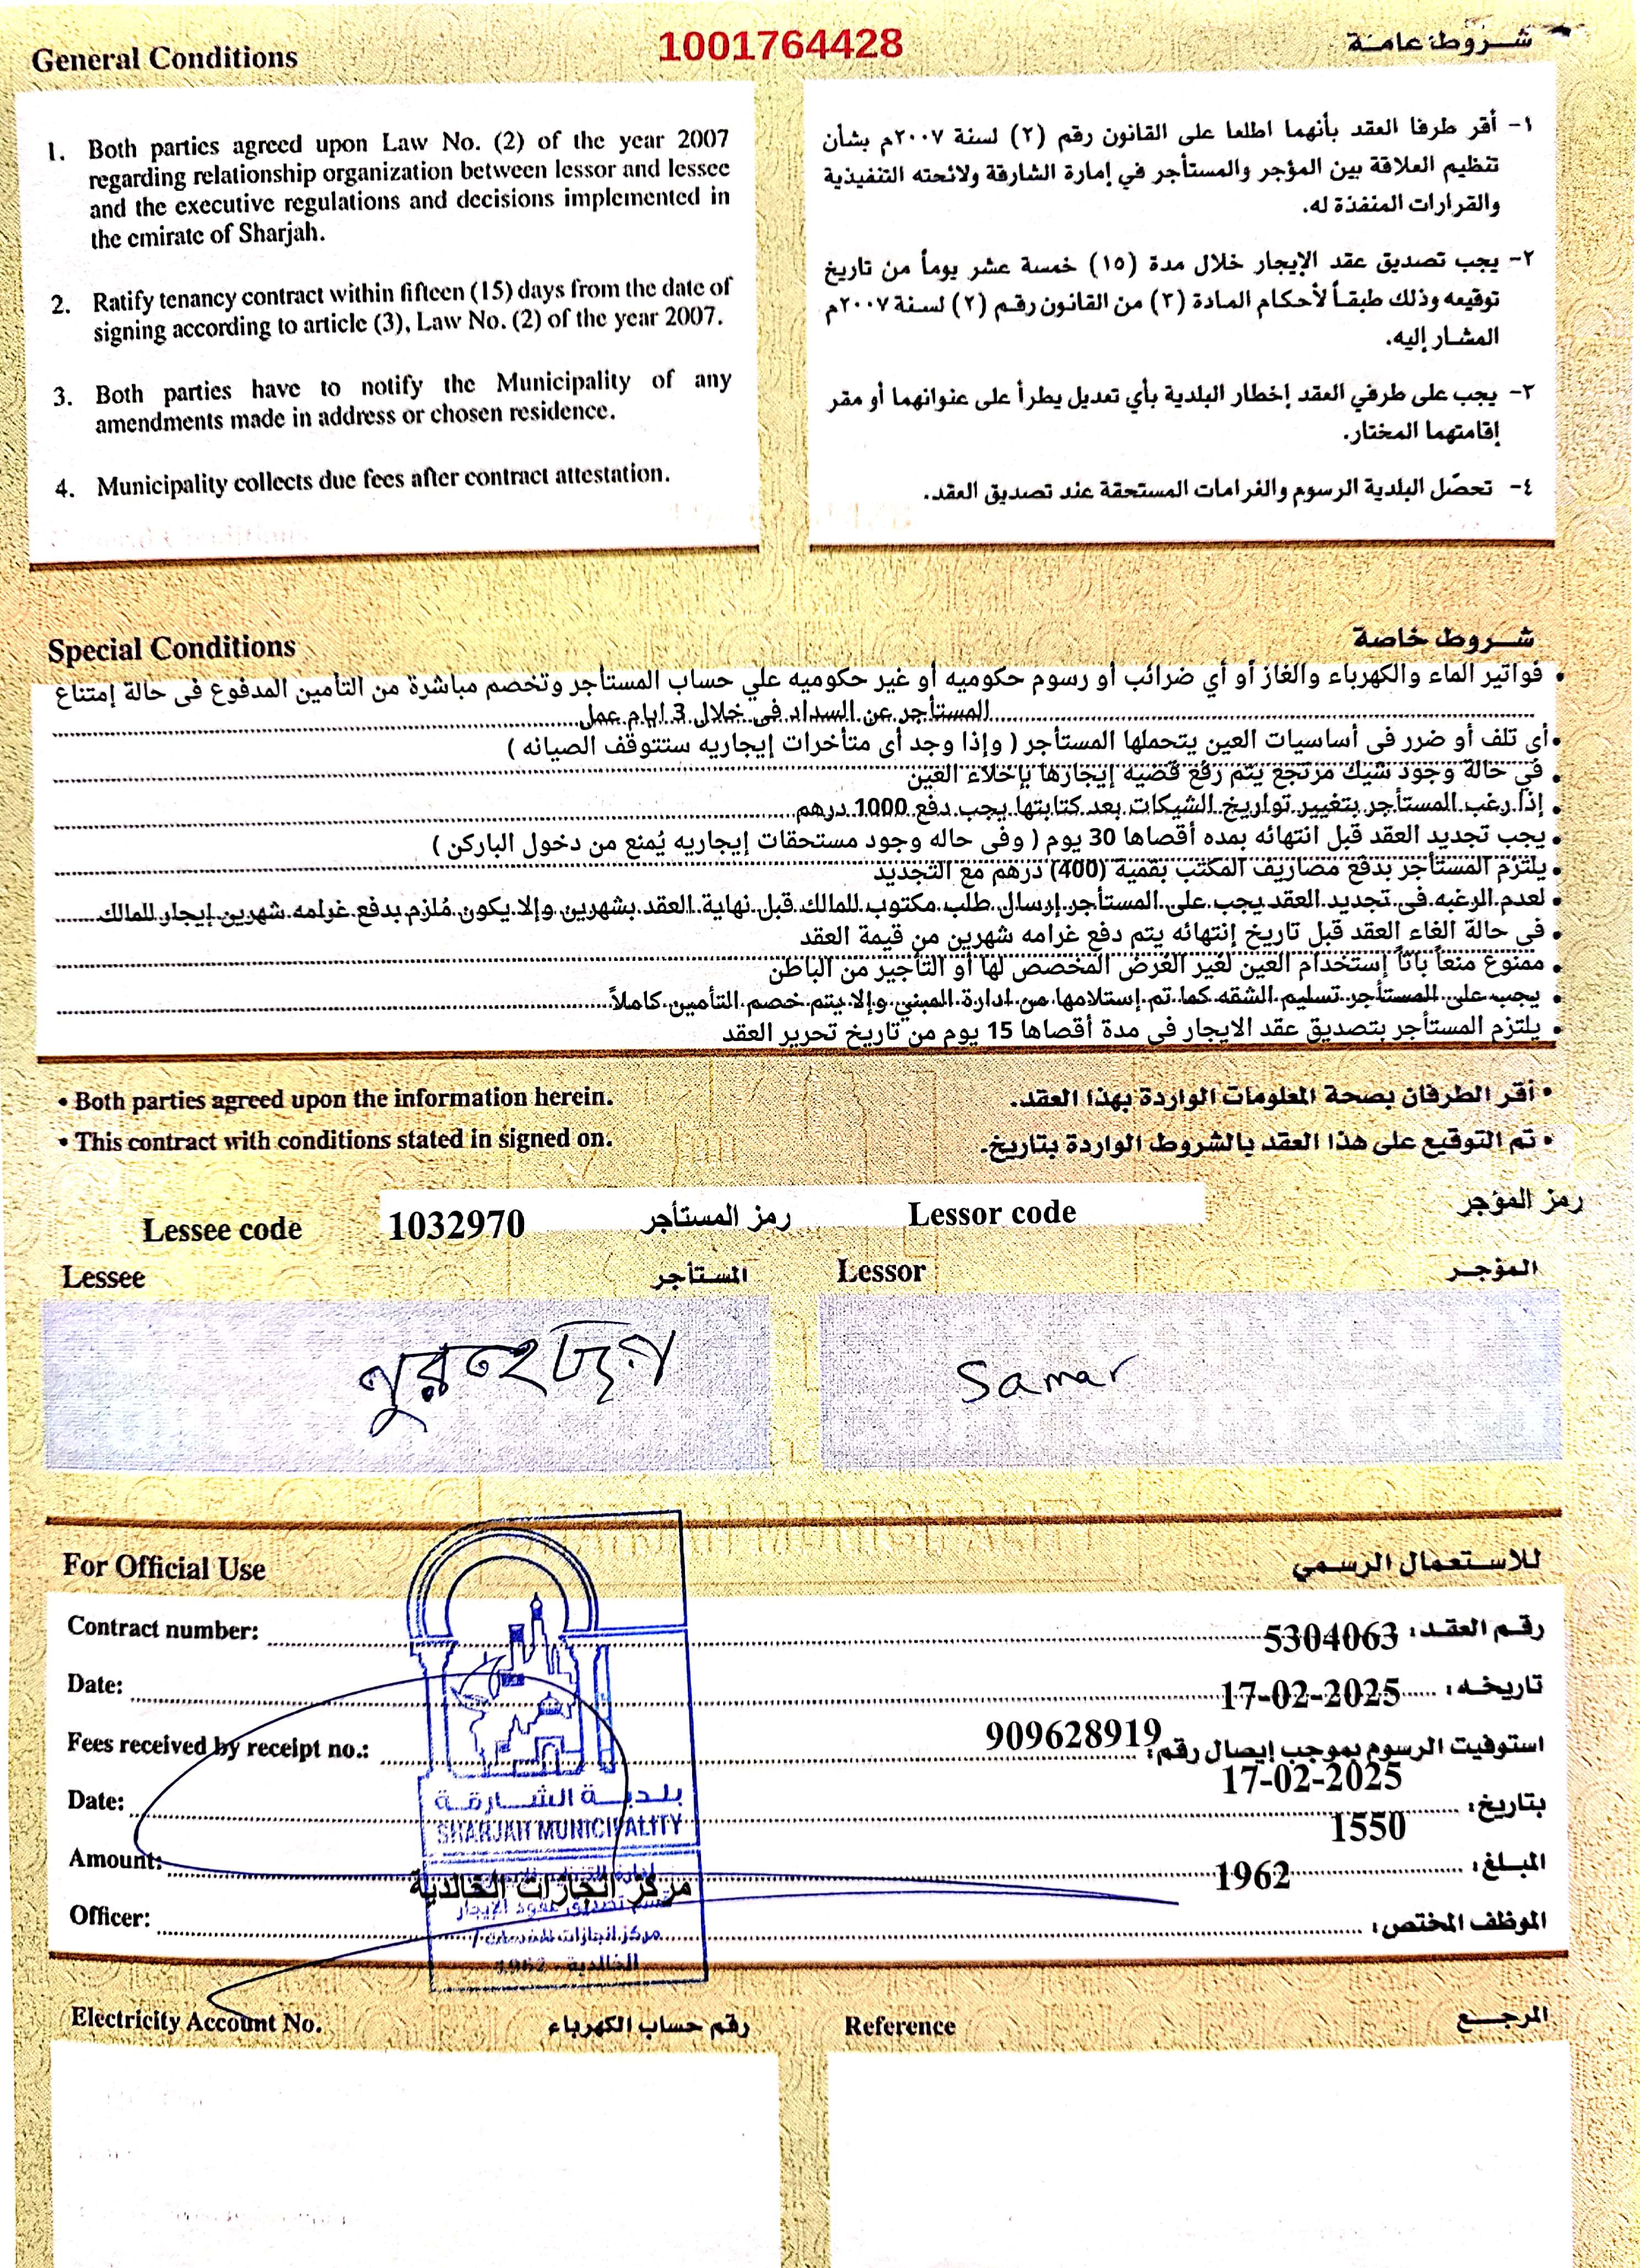 General Conditions
1001764428
شروط عامة
1. Both parties agreed upon Law No. (2) of the year 2007
regarding relationship organization between lessor and lessee
and the executive regulations and decisions implemented in
the emirate of Sharjah.
2. Ratify tenancy contract within fifteen (15) days from the date of
signing according to article (3), Law No. (2) of the year 2007.
3. Both parties have to notify the Municipality of any
amendments made in address or chosen residence.
4. Municipality collects due fees after contract attestation.
١- أقر طرفا العقد بأنهما اطلعا على القانون رقم (٢) لسنة ٢٠٠٧م بشأن
تنظيم العلاقة بين المؤجر والمستأجر في إمارة الشارقة ولائحته التنفيذية
والقرارات المنفذة له.
٢- يجب تصديق عقد الإيجار خلال مدة (١٥) خمسة عشر يوماً من تاريخ
توقيعه وذلك طبقاً لأحكام المادة (٣) من القانون رقم (٢) لسنة ٢٠٠٧م
المشار إليه.
٣- يجب على طرفي العقد إخطار البلدية بأي تعديل يطرأ على عنوانهما أو مقر
إقامتهما المختار.
٤- تحصّل البلدية الرسوم والغرامات المستحقة عند تصديق العقد.
Special Conditions
شروط خاصة
• فواتير الماء والكهرباء والغاز أو أي ضرائب أو رسوم حكوميه أو غير حكوميه علي حساب المستأجر وتخصم مباشرة من التأمين المدفوع فى حالة إمتناع
المستأجر عن السداد فى خلال 3 ايام عمل
• أى تلف أو ضرر فى أساسيات العين يتحملها المستأجر ( وإذا وجد أى متأخرات إيجاريه ستتوقف الصيانه )
• في حالة وجود شيك مرتجع يتم رفع قضيه إيجارها بإخلاء العين
• إذا رغب المستأجر بتغيير تواريخ الشيكات بعد كتابتها يجب دفع 1000 درهم
• يجب تجديد العقد قبل انتهائه بمده أقصاها 30 يوم ( وفى حاله وجود مستحقات إيجاريه يُمنع من دخول الباركن )
• يلتزم المستأجر بدفع مصاريف المكتب بقمية (400) درهم مع التجديد
• لعدم الرغبه فى تجديد العقد يجب على المستأجر إرسال طلب مكتوب للمالك قبل نهاية العقد بشهرين وإلا يكون مُلزم بدفع غرامه شهرين إيجار للمالك
• فى حالة الغاء العقد قبل تاريخ إنتهائه يتم دفع غرامه شهرين من قيمة العقد
• ممنوع منعاً باتاً إستخدام العين لغير الغرض المخصص لها أو التأجير من الباطن
• يجب على المستأجر تسليم الشقه كما تم إستلامها من ادارة المبني وإلا يتم خصم التأمين كاملاً
• يلتزم المستأجر بتصديق عقد الايجار فى مدة أقصاها 15 يوم من تاريخ تحرير العقد
• Both parties agreed upon the information herein.
• أقر الطرفان بصحة المعلومات الواردة بهذا العقد.
• This contract with conditions stated in signed on.
• تم التوقيع على هذا العقد بالشروط الواردة بتاريخ.
Lessee code 1032970 رمز المستأجر Lessor code رمز المؤجر
Lessee المستأجر Lessor المؤجر
Samar
For Official Use
للاستعمال الرسمي
Contract number: 5304063 رقم العقد:
Date: 17-02-2025 تاريخه:
Fees received by receipt no.: 909628919 استوفيت الرسوم بموجب إيصال رقم:
Date: 17-02-2025 بتاريخ:
Amount: 1550 المبلغ:
Officer: 1962 الموظف المختص:
بلدية الشارقة
SHARJAH MUNICIPALITY
مركز انجازات الخالدية
قسم تصديق عقود الإيجار
مركز انجازات للخدمات /
الخالدية - 1962
Electricity Account No. رقم حساب الكهرباء Reference المرجع